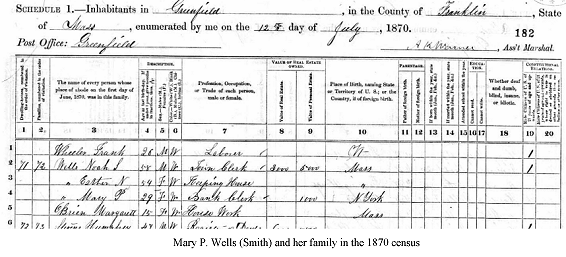 SCHEDULE 1.—Inhabitants in Greenfield, in the County of Franklin, State
of Mass, enumerated by me on the 12th day of July, 1870. 182
Post Office: Greenfield A K Warner, Ass't Marshal.
DESCRIPTION. VALUE OF REAL ESTATE OWNED. PARENTAGE.
The name of every person whose place of abode on the first day of June, 1870, was in this family.
Profession, Occupation, or Trade of each person, male or female.
Value of Real Estate.
Value of Personal Estate.
Place of Birth, naming State or Territory of U. S.; or the Country, if of foreign birth.
Whether deaf and dumb, blind, insane, or idiotic.
1 2 3 4 5 6 7 8 9 10 11 12 13 14 15 16 17 18 19 20
1 Wheeler Frank 26 M W Laborer 1
2 71 72 Wells Noah S M W Town Clerk 3000 5000 Mass 1
3 " Esther N 54 F W Keeping House "
4 " Mary P 29 F W Bank Clerk 1000 N York
5 O'Brien Margarett 15 F W House Work Mass
6 72 73 Humphrey 1
Mary P. Wells (Smith) and her family in the 1870 census